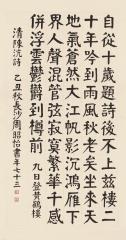 自從十歲題詩後不上茲樓二
十年今到雨風秋老矣坐來天
地氣蒼然大江帆影沉鴻雁下
界人聲混管弦寂寞繁華千感
併浮雲鬱鬱到樽前 九日登黃鶴樓
清陳沆詩 乙丑秋長沙周昭怡書年七十三